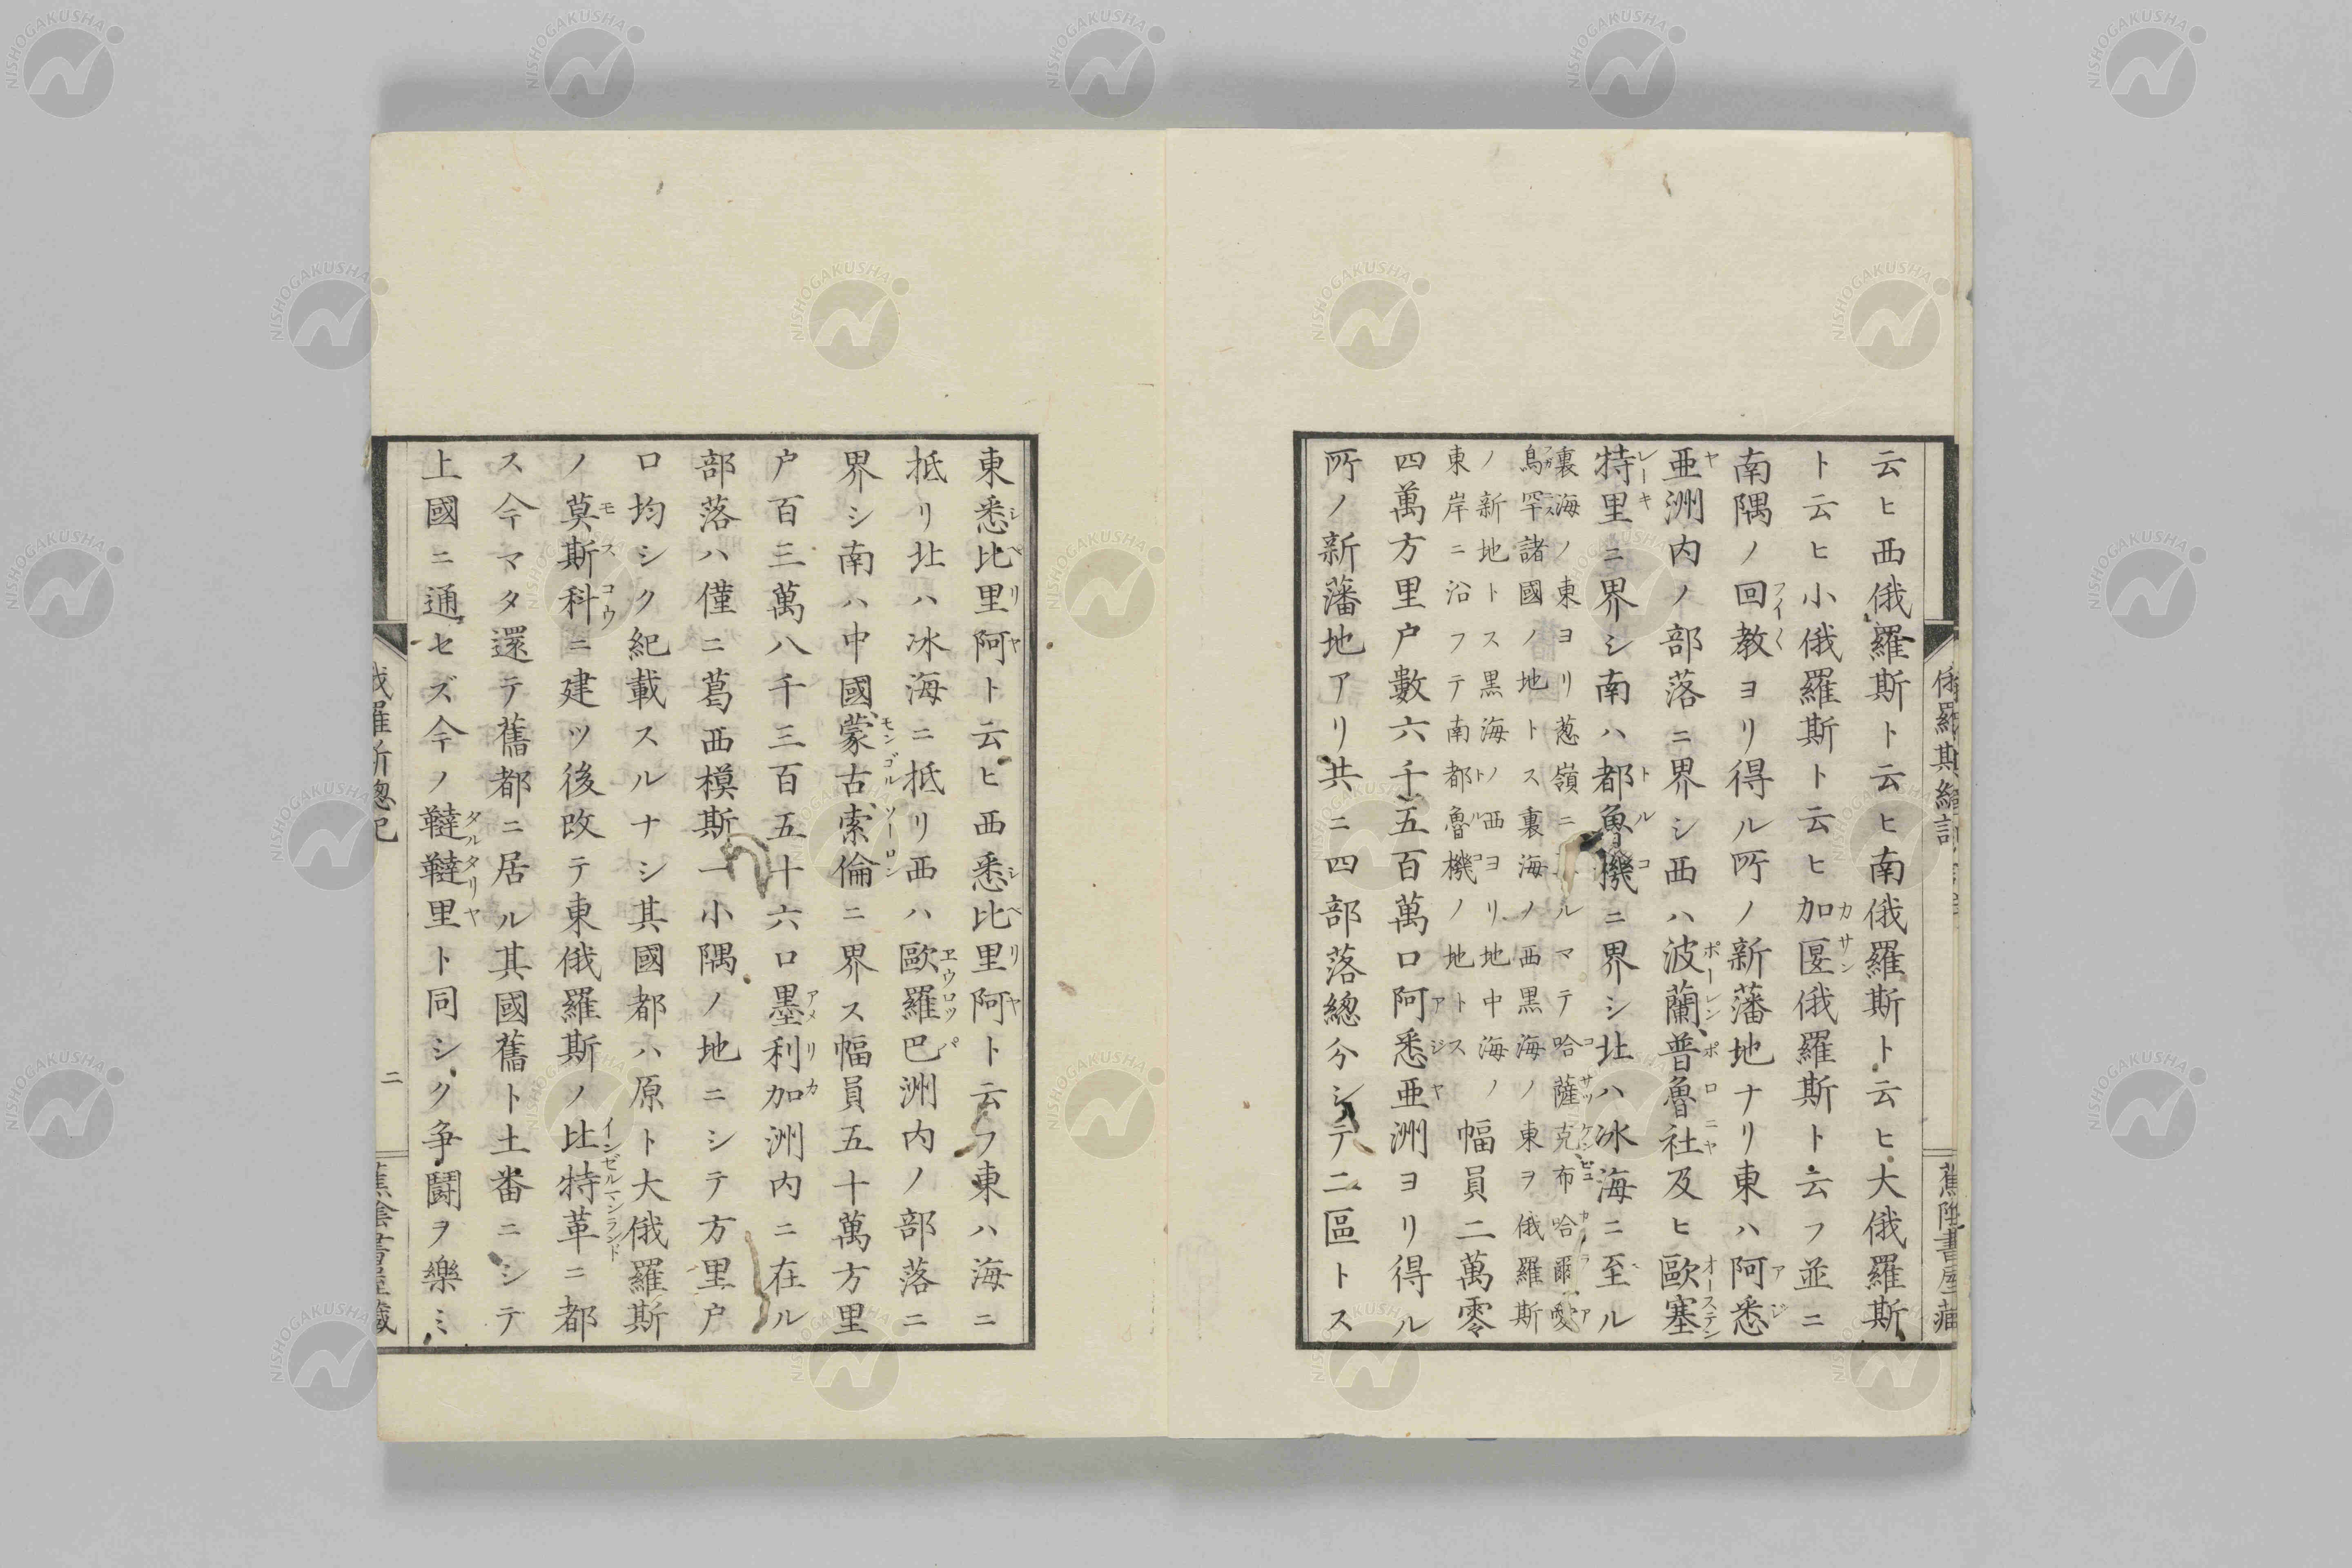 云ヒ西俄羅斯ト云ヒ南俄羅斯ト云ヒ大俄羅斯
ト云ヒ小俄羅斯ト云ヒ加匽俄羅斯ト云フ並ニ
南隅ノ回教ヨリ得ル所ノ新藩地ナリ東ハ阿悉
亜洲内ノ部落ニ界シ西ハ波蘭普魯社及ヒ歐塞
特里ニ界シ南ハ都魯機ニ界シ北ハ冰海ニ至ル
裏海ノ東ヨリ葱嶺ニ ルマテ哈薩克布哈爾愛
烏罕諸國ノ地トス裏海ノ西黒海ノ東ヲ俄羅斯
ノ新地トス黒海ノ西ヨリ地中海ノ
東岸ニ沿フテ南都魯機ノ地トス
幅員二萬零
四萬方里戸數六千五百萬口阿悉亜洲ヨリ得ル
所ノ新藩地アリ共ニ四部落總分シテ二區トス
東悉比里阿ト云ヒ西悉比里阿ト云フ東ハ海ニ
抵リ北ハ冰海ニ抵リ西ハ歐羅巴洲内ノ部落ニ
界シ南ハ中國蒙古索倫ニ界ス幅員五十萬方里
戸百三萬八千三百五十六口墨利加洲内ニ在ル
部落ハ僅ニ葛西模斯一小隅ノ地ニシテ方里戸
口均シク紀載スルナシ其國都ハ原ト大俄羅斯
ノ莫斯科ニ建ツ後改テ東俄羅斯ノ比特革ニ都
ス今マタ還テ舊都ニ居ル其國舊ト土番ニシテ
上國ニ通セズ今ノ韃韃里ト同シク争鬪ヲ樂ミ
俄羅斯總記
二
蕉陰書屋藏
NISHOGAKUSHA